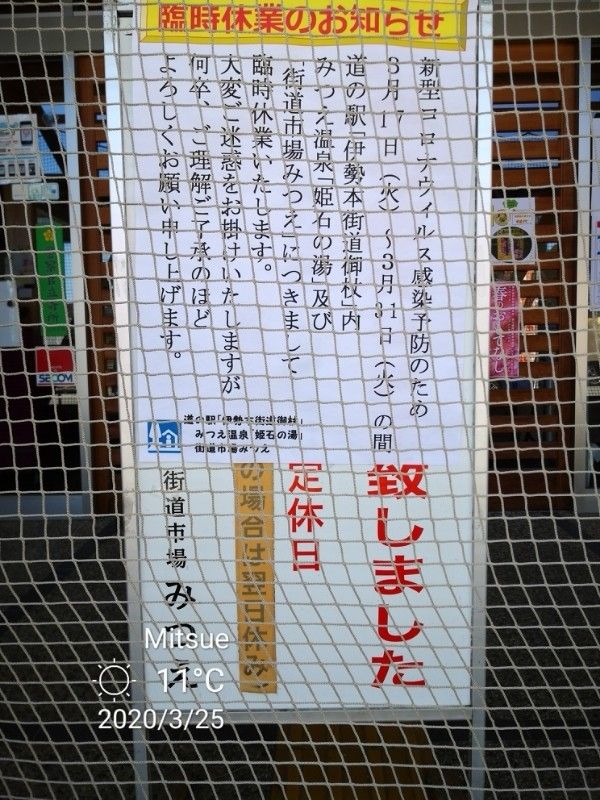 臨時休業のお知らせ
新型コロナウィルス感染予防のため
3月17日（火）～3月31日（火）の間
道の駅「伊勢本街道御杖」内
みつえ温泉「姫石の湯」及び
「街道市場みつえ」につきまして
臨時休業いたします。
大変ご迷惑をお掛けいたしますが
何卒、ご理解ご了承のほど
よろしくお願い申し上げます。
道の駅「伊勢本街道御杖」
みつえ温泉「姫石の湯」
街道市場みつえ
致しました
定休日
の場合は翌日休み
街道市場 みつえ
SECOM
Mitsue
11°C
2020/3/25